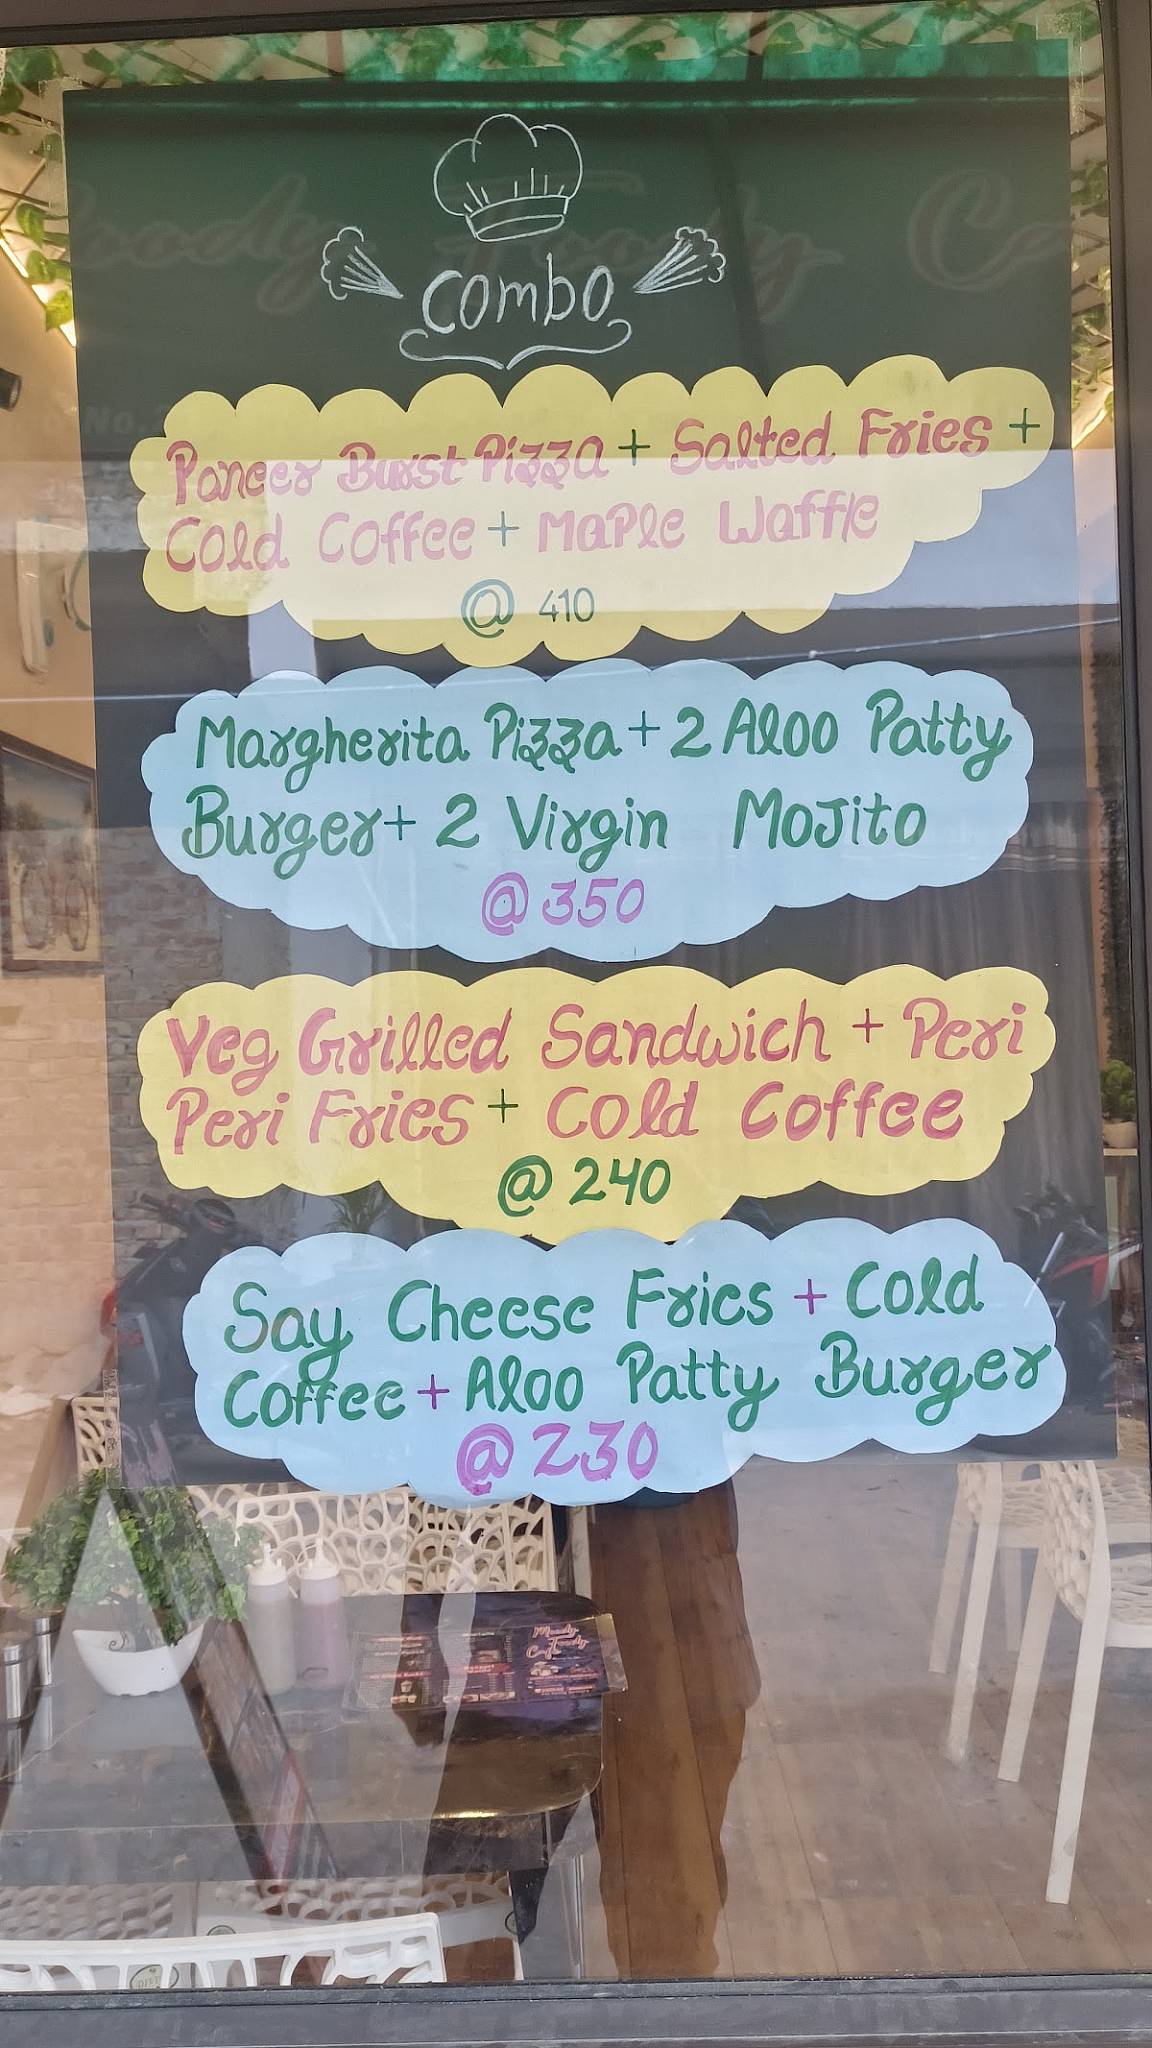 Moody Foody Ca
No.
combo
Paneer Burst Pizza + Salted Fries +
Cold Coffee + Maple Waffle
@ 410
Margherita Pizza + 2 Aloo Patty
Burger + 2 Virgin Mojito
@ 350
Veg Grilled Sandwich + Peri
Peri Fries + Cold Coffee
@ 240
Say Cheese Fries + Cold
Coffee + Aloo Patty Burger
@ 230
Moody
Foody
Cafe